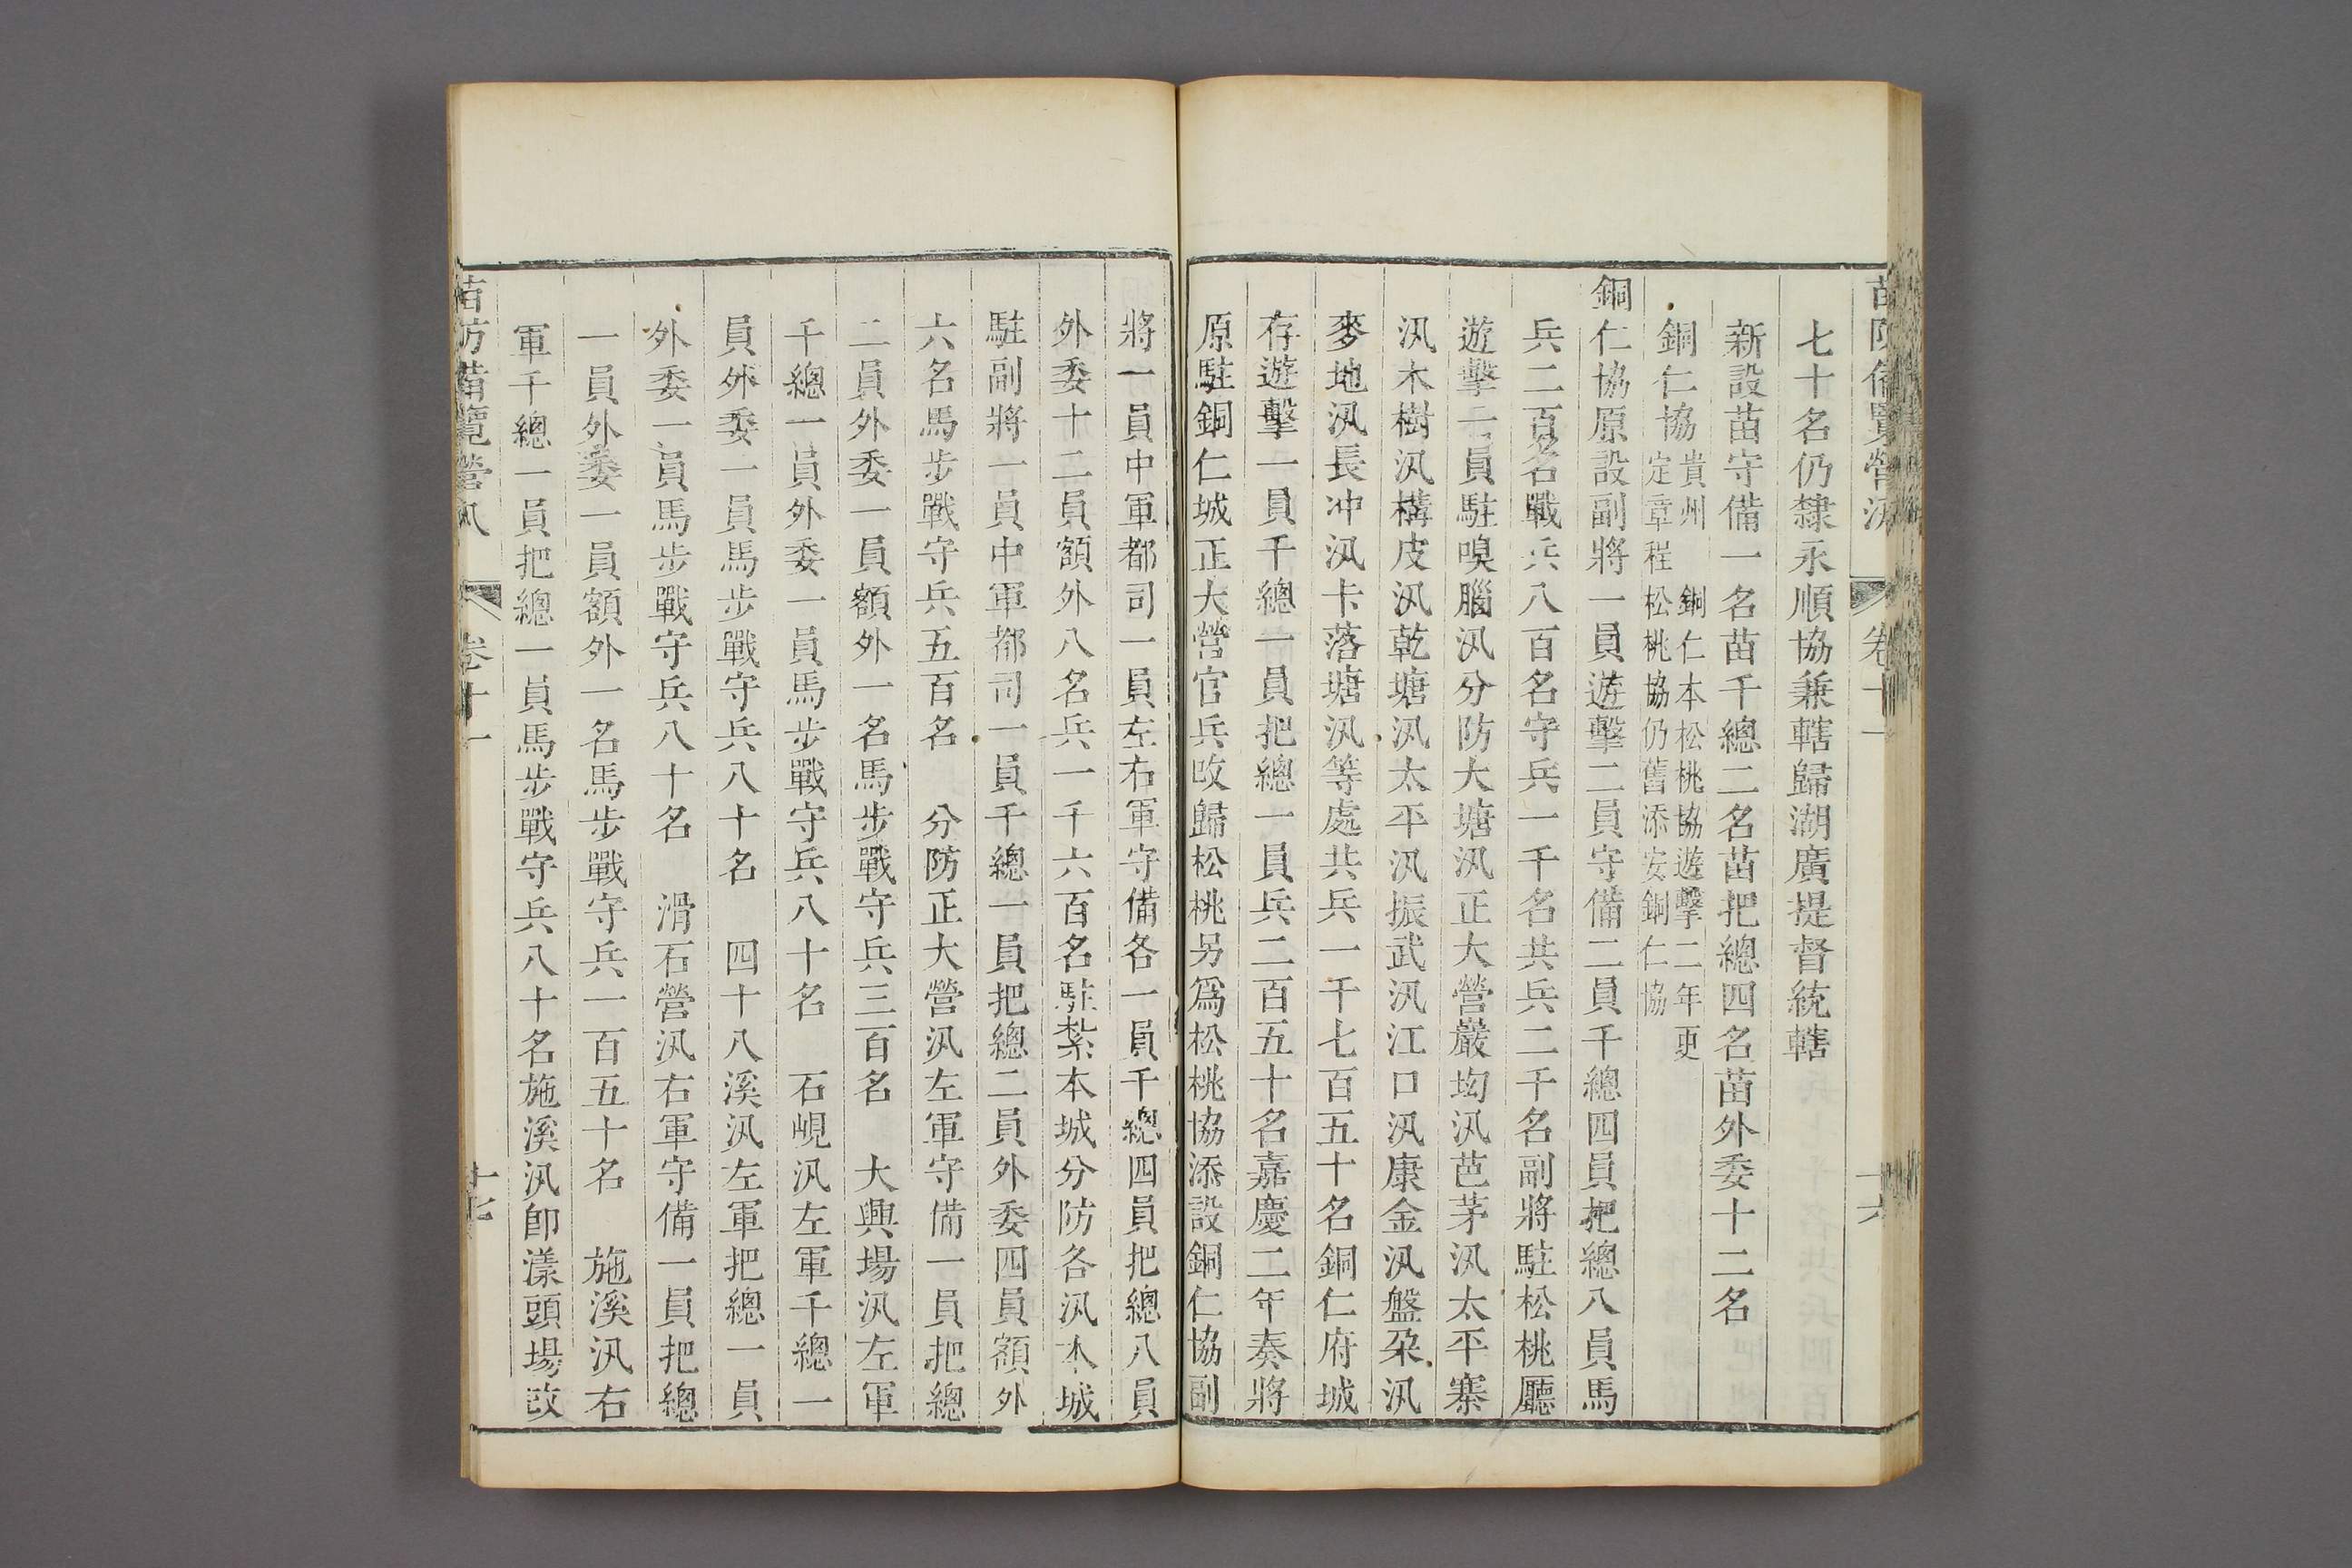 苗防備覽 營汛 卷十一 十六
七十名仍隸永順協兼轄歸湖廣提督統轄
新設苗守備一名苗千總二名苗把總四名苗外委十二名
銅仁協 貴州 銅仁本松桃協遊擊二年更
定章程 松桃協仍舊添安銅仁協
銅仁協原設副將一員遊擊二員守備二員千總四員把總八員馬
兵二百名戰兵八百名守兵一千名共兵二千名副將駐松桃廳
遊擊一員駐嗅腦汛分防大塘汛正大營嚴坳汛芭茅汛太平寨
汛木樹汛構皮汛乾塘汛太平汛振武汛江口汛康金汛盤朶汛
麥地汛長冲汛卡落塘汛等處共兵一千七百五十名銅仁府城
存遊擊一員千總一員把總一員兵二百五十名嘉慶二年奏將
原駐銅仁城正大營官兵改歸松桃另爲松桃協添設銅仁協副
將一員中軍都司一員左右軍守備各一員千總四員把總八員
外委十二員額外八名兵一千六百名駐紮本城分防各汛本城
駐副將一員中軍都司一員千總一員把總二員外委四員額外
六名馬步戰守兵五百名 分防正大營汛左軍守備一員把總
二員外委一員額外一名馬步戰守兵三百名 大興場汛左軍
千總一員外委一員馬步戰守兵八十名 石峴汛左軍千總一
員外委一員馬步戰守兵八十名 四十八溪汛左軍把總一員
外委一員馬步戰守兵八十名 滑石營汛右軍守備一員把總
一員外委一員額外一名馬步戰守兵一百五十名 施溪汛右
軍千總一員把總一員馬步戰守兵八十名施溪汛卽漾頭場改
苗防備覽 營汛 卷十一 十七